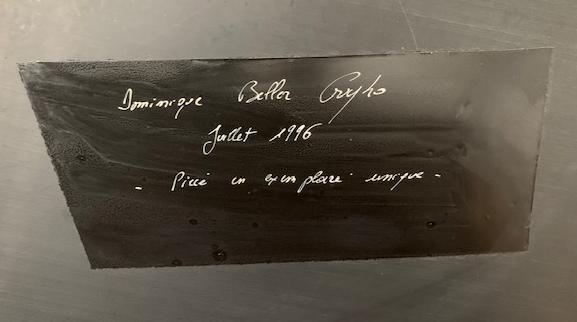 Dominique Beller
Juillet 1996
- Piece en exemplaire unique -